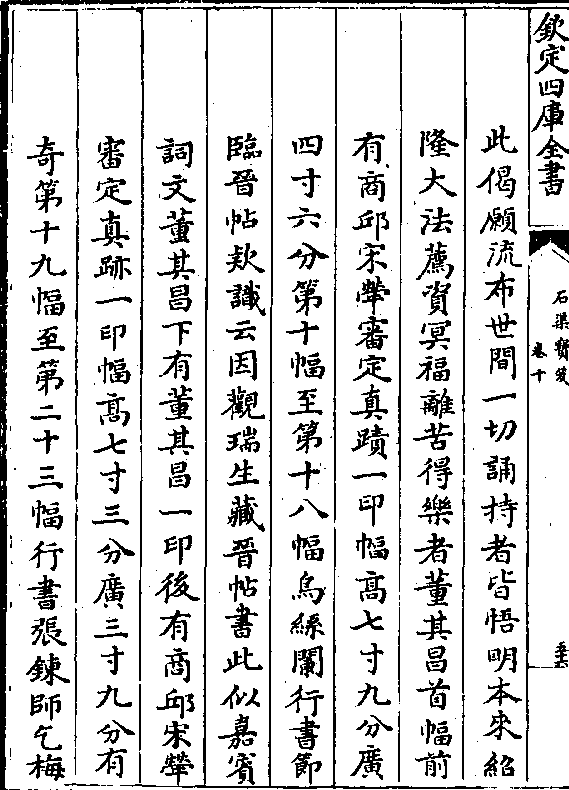 欽定四庫全書
石渠寳笈
卷十
此偈願流布世間一切誦持者皆悟明本来紹
隆大法薦資冥福離苦得樂者董其昌首幅前
有商邱宋犖審定真蹟一印幅髙七寸九分廣
四寸六分第十幅至第十八幅烏絲闌行書節
臨晉帖欵識云因觀瑞生藏晉帖書此似嘉賓
詞文董其昌下有董其昌一印後有商邱宋犖
審定真跡一印幅髙七寸三分廣三寸九分有
奇第十九幅至第二十三幅行書張錬師乞梅